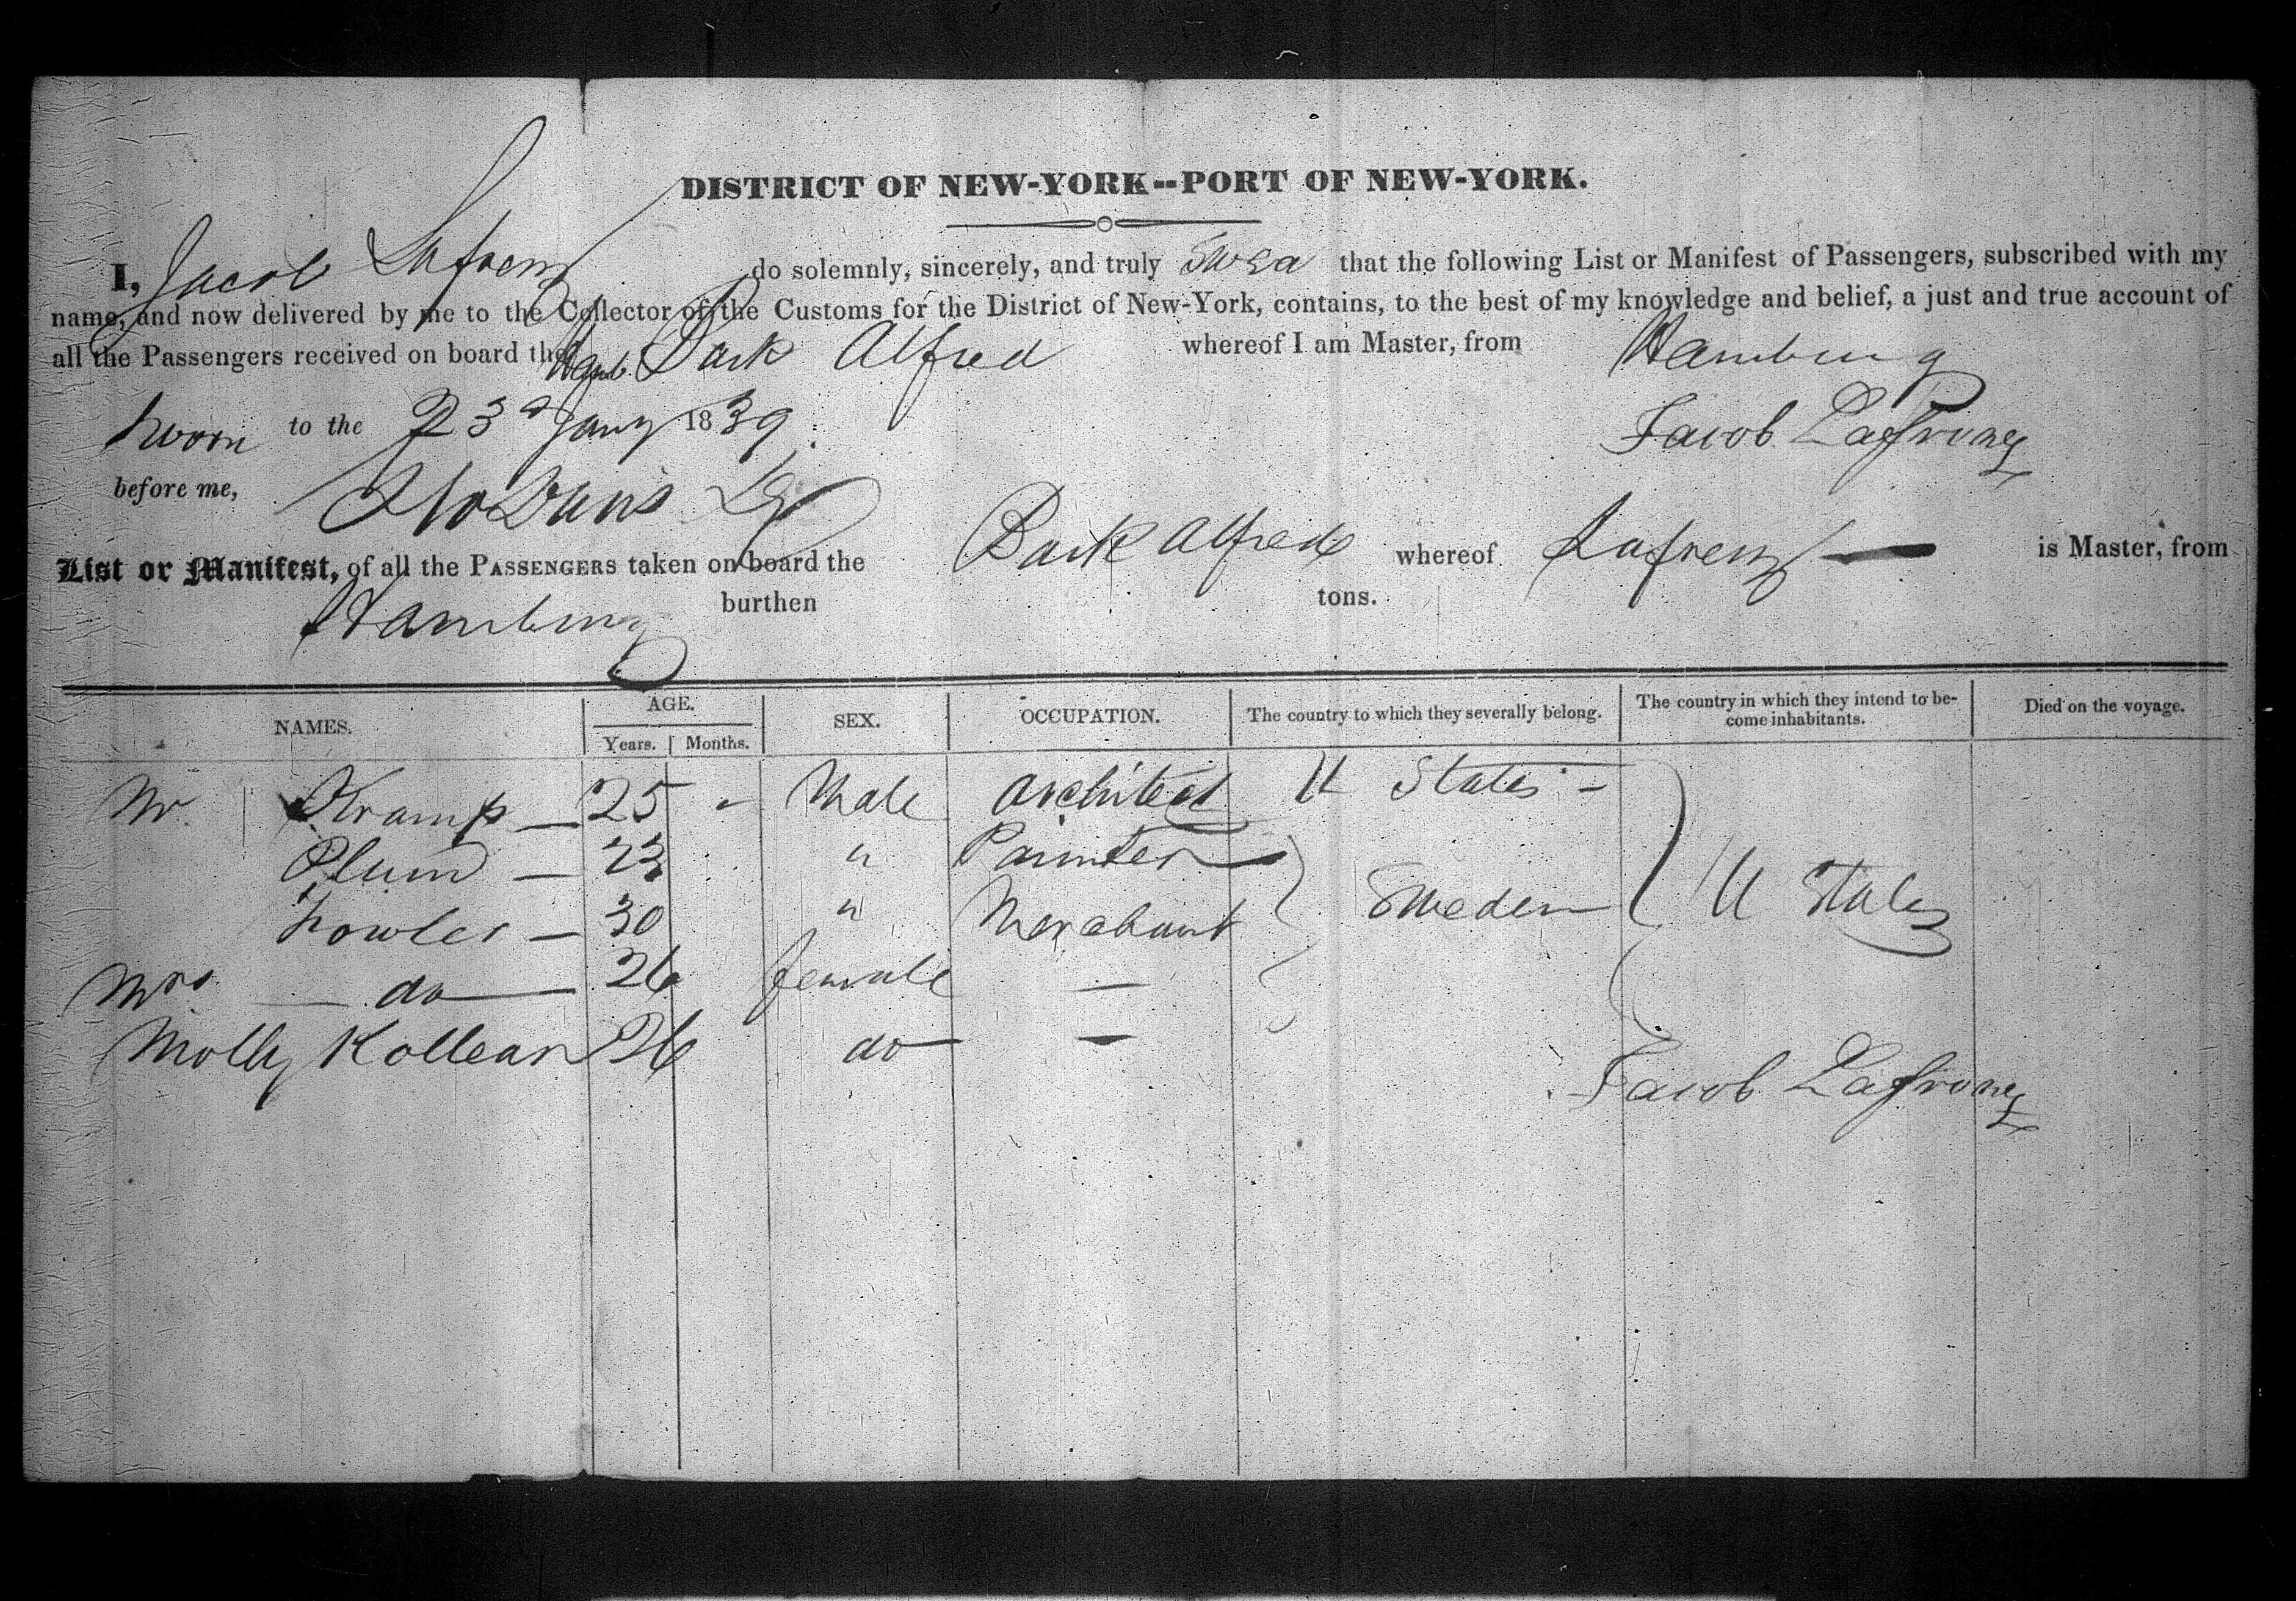 DISTRICT OF NEW-YORK--PORT OF NEW-YORK.
I, Jacob Lafrenz do solemnly, sincerely, and truly Swear that the following List or Manifest of Passengers, subscribed with my
name, and now delivered by me to the Collector of the Customs for the District of New-York, contains, to the best of my knowledge and belief, a just and true account of
all the Passengers received on board the Hamb. Bark Alfred whereof I am Master, from Hamburg
Sworn to the 23d Jany 1839. Jacob Lafrenz
before me,
List or Manifest, of all the PASSENGERS taken on board the Bark Alfred whereof Lafrenz — is Master, from
Hamburg burthen tons.
NAMES. AGE. Years. Months. SEX. OCCUPATION. The country to which they severally belong. The country in which they intend to become inhabitants. Died on the voyage.
Mr. Kramp — 25 - Male Architect U States -
Plum — 23 " Painter
Fowler — 30 " Merchant Sweden U States
Mrs — do — 26 female —
Molly Kollean 26 do —
Jacob Lafrenz